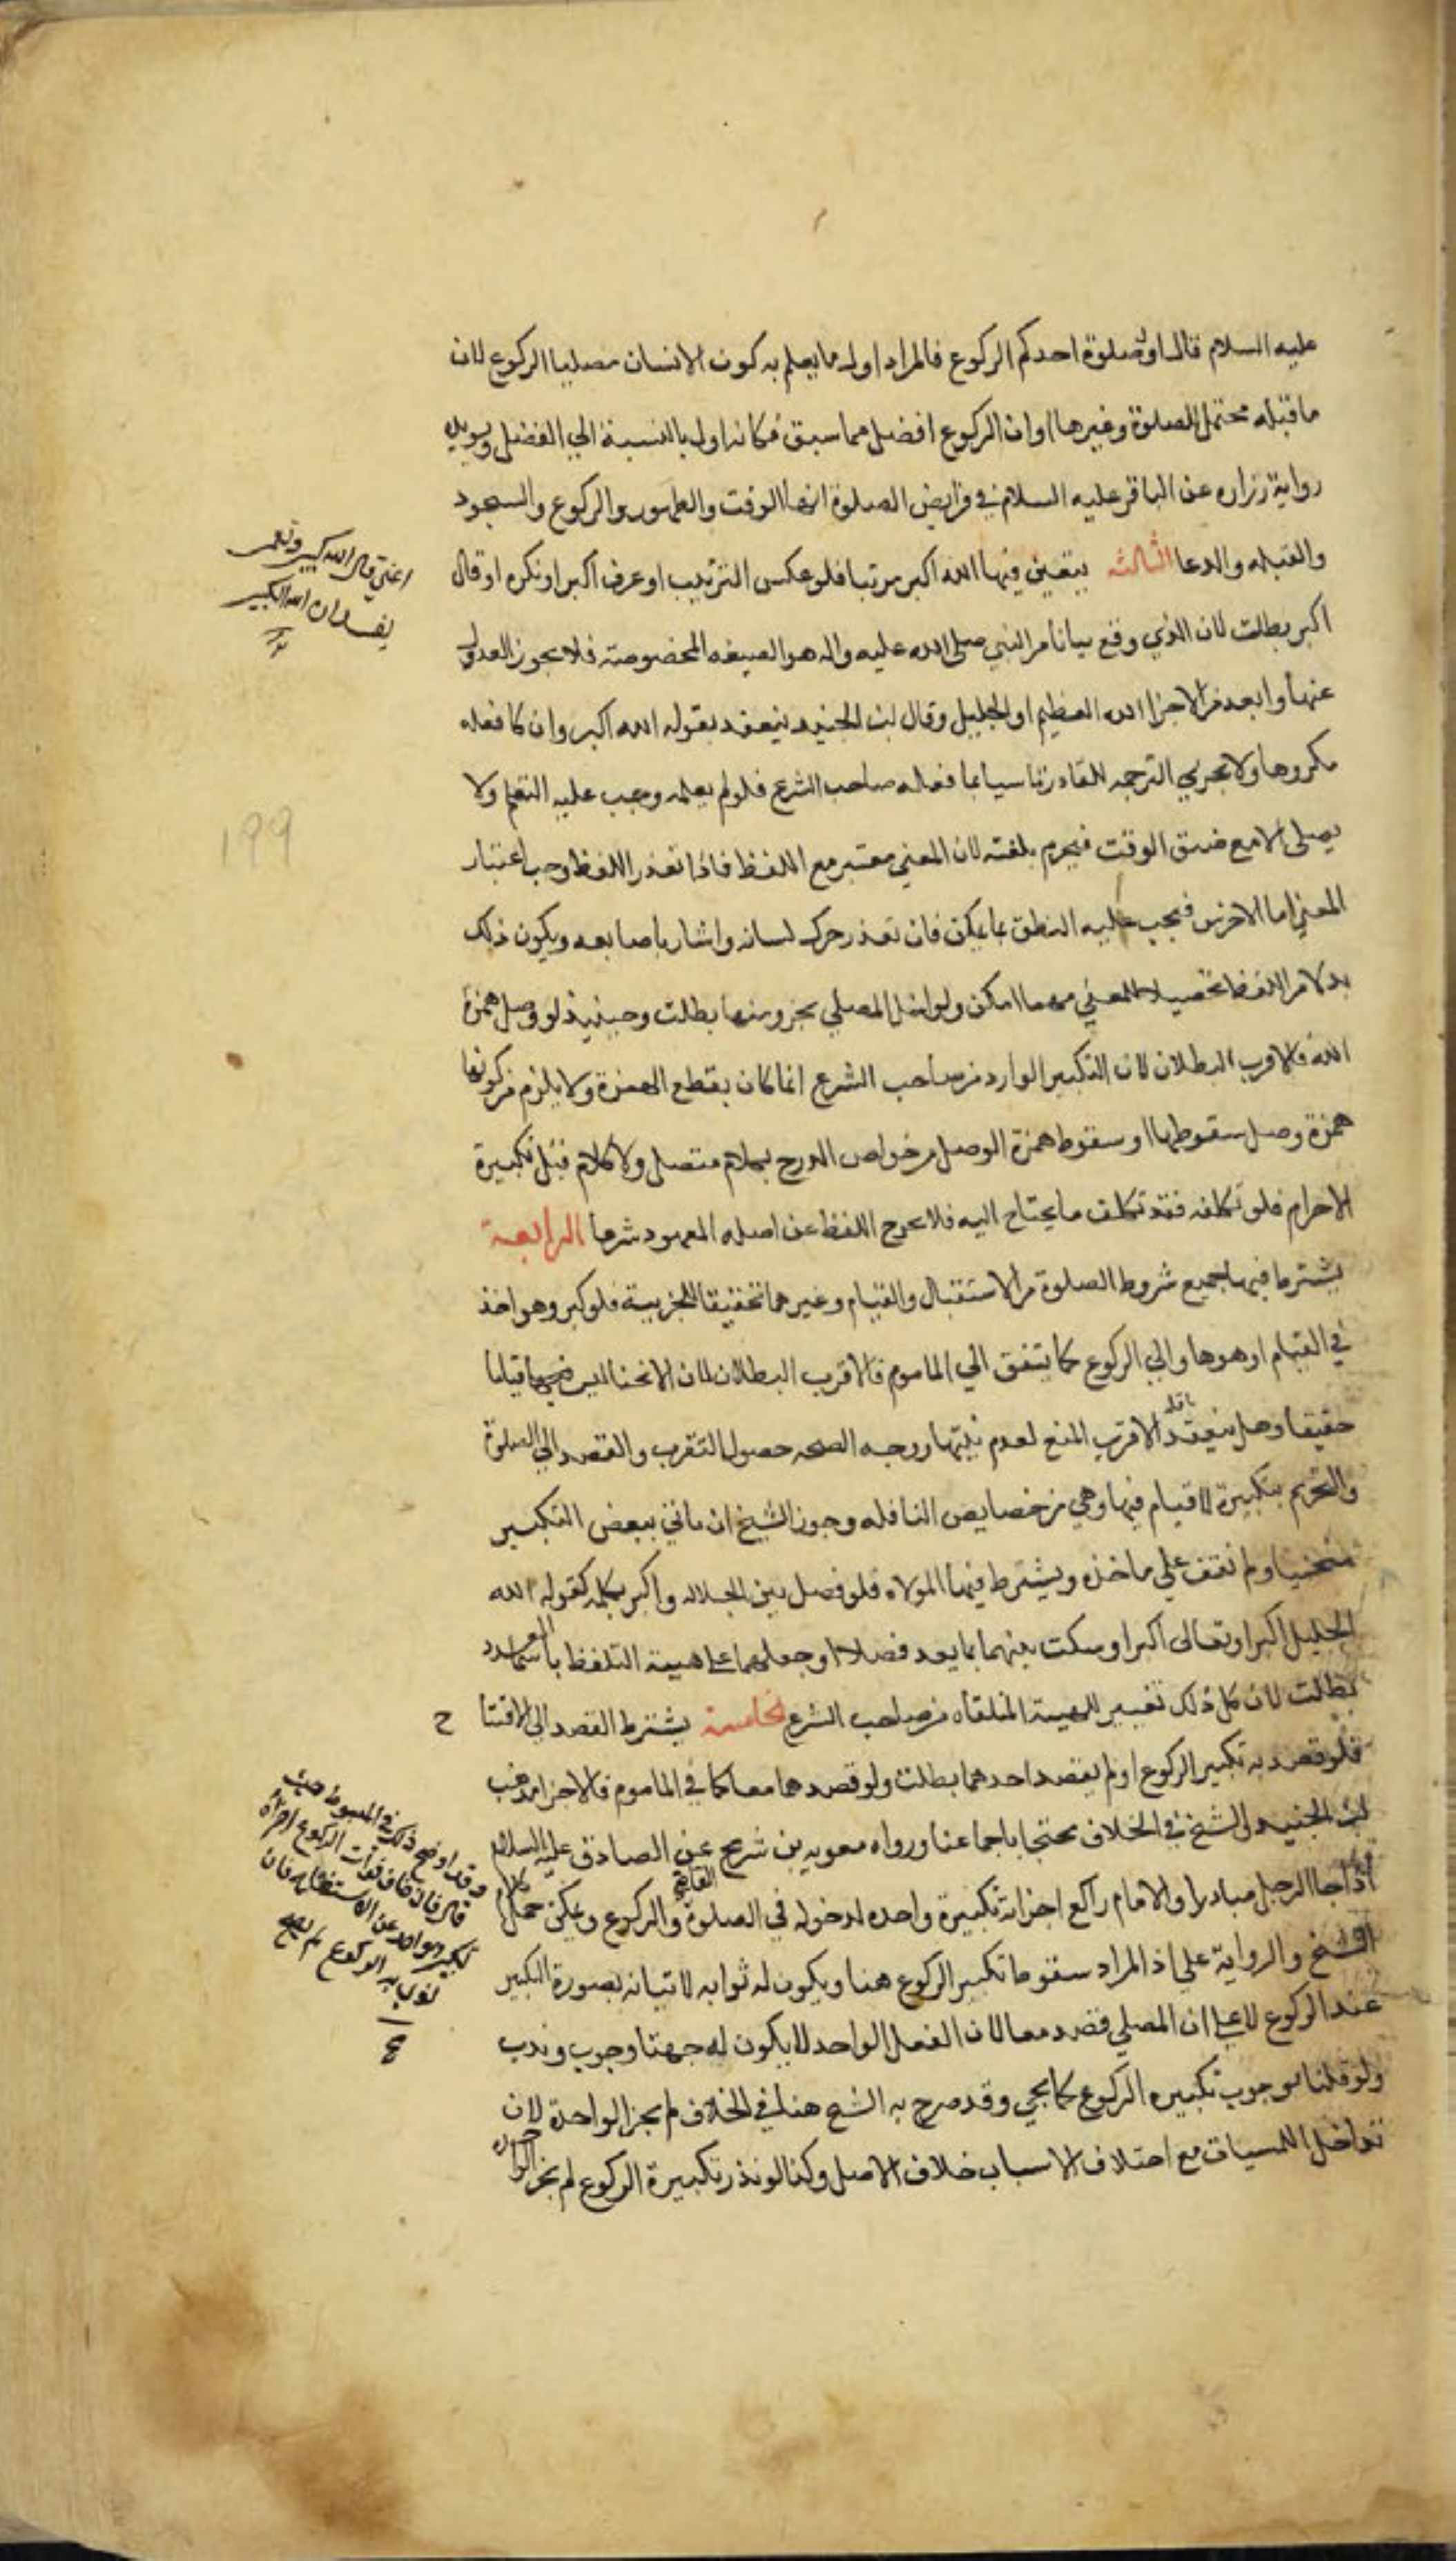 عليه السلام قال اول صلوة احدكم الركوع فالمراد اول ما يعلم به كون الانسان مصليا الركوع لان
ما قبله محتمل الصلوة وغيرها او ان الركوع افضل مما سبق فكانه اول بالنسبة الي الفضل ويويده
رواية زراره عن الباقر عليه السلام في فرايض الصلوة انها الوقت والطهور والركوع والسجود
والقبله والدعا الثالثه يتعين فيها الله اكبر مرتبا فلو عكس الترتيب او عرف اكبر او نكره او قال
اكبر بطلت لان الذي وقع بيانا من النبي صلى الله عليه واله هو الصيغه المخصوصة فلا يجوز العدول
عنها وابعد من الاجزا الله العظيم او الجليل وقال ابن الجنيد ينعقد بقوله الله اكبر وان كا فعله
مكروها ولا تجزي الترجمه للقادر تاسيا بما فعله صاحب الشرع فلو لم يعلمه وجب عليه التعلم ولا
يصلي الا مع ضيق الوقت فيحرم بلغته لان المعني معتبر مع اللفظ فاذا تعذر اللفظ وجب اعتبار
المعني اما الاخرس فيجب عليه النطق بما يمكن فان تعذر حرك لسانه واشار باصابعه ويكون ذلك
بدلا من اللفظ تحصيلا للمعني مهما امكن ولو اخل المصلي بحرف منها بطلت وحينيذ لو وصل همزة
الله فالاقرب البطلان لان التكبير الوارد من صاحب الشرع انما كان بقطع الهمزة ولا يلزم من كونها
همزة وصل سقوطها او سقوط همزة الوصل من خواص الدرج بكلام متصل ولا كلام قبل تكبيرة
الاحرام فلو تكلفه فقد تكلف ما يحتاج اليه فلا يخرج اللفظ عن اصله المعهود شرعا الرابعة
يشترط فيها جميع شروط الصلوة من الاستقبال والقيام وغيرهما تحقيقا للجزيية فلو كبر وهو اخذ
في القيام او هو هاو الي الركوع كما يتفق الي الماموم فالاقرب البطلان لان الانحنا ليس قياما
حقيقيا وهل ينعقد نافله الاقرب المنع لعدم نيتها ووجه الصحه حصول التقرب والقصد الي الصلوة
والتحريم بتكبيرة لا قيام فيها وهي من خصايص النافله وجوز الشيخ ان ياتي ببعض التكبير
منحنيا ولم نقف علي ماخذه ويشترط فيها الموالاه فلو فصل بين الجلاله واكبر بكلمه كقوله الله
الجليل اكبر او تعالى اكبر او سكت بينهما بما يعد فصلا او جعلهما علي هيية التلفظ باسما العدد
بطلت لان كل ذلك تغيير للهيية المتلقاه من صاحب الشرع الخامسة يشترط القصد الي الافتتا
ح
فلو قصد به تكبير الركوع او لم يقصد احدهما بطلت ولو قصدهما معا كما في الماموم فالاجزا مذهب
ابن الجنيد والشيخ في الخلاف محتجا باجماعنا ورواه معويه بن شريح عن الصادق عليه السلام
اذا جا الرجل مبادرا والامام راكع اجزاته تكبيرة واحده لدخوله في الصلوة والركوع ويمكن حمل كلام
الشيخ والرواية علي اذ المراد سقوط تكبير الركوع هنا ويكون له ثوابه لاتيانه بصورة التكبير
عند الركوع لا علي ان المصلي قصد معا لان الفعل الواحد لا يكون له جهتا وجوب وندب
ولو قلنا بوجوب تكبيره الركوع كما يجي وقد صرح به الشيخ هنا في الخلاف لم يجز الواحدة لان
تداخل المسببات مع اختلاف الاسباب خلاف الاصل وكذا لو نذر تكبيرة الركوع لم يجز الواحدة
اعني قال الله كبير
الله الكبير
١٩٩
وقد اوضح ذلك في المبسوط حيث
قال فان خاف فوات الركوع اجزأه
تكبير واحد عن الاستفتاح فان
نوى به الركوع لم يصح